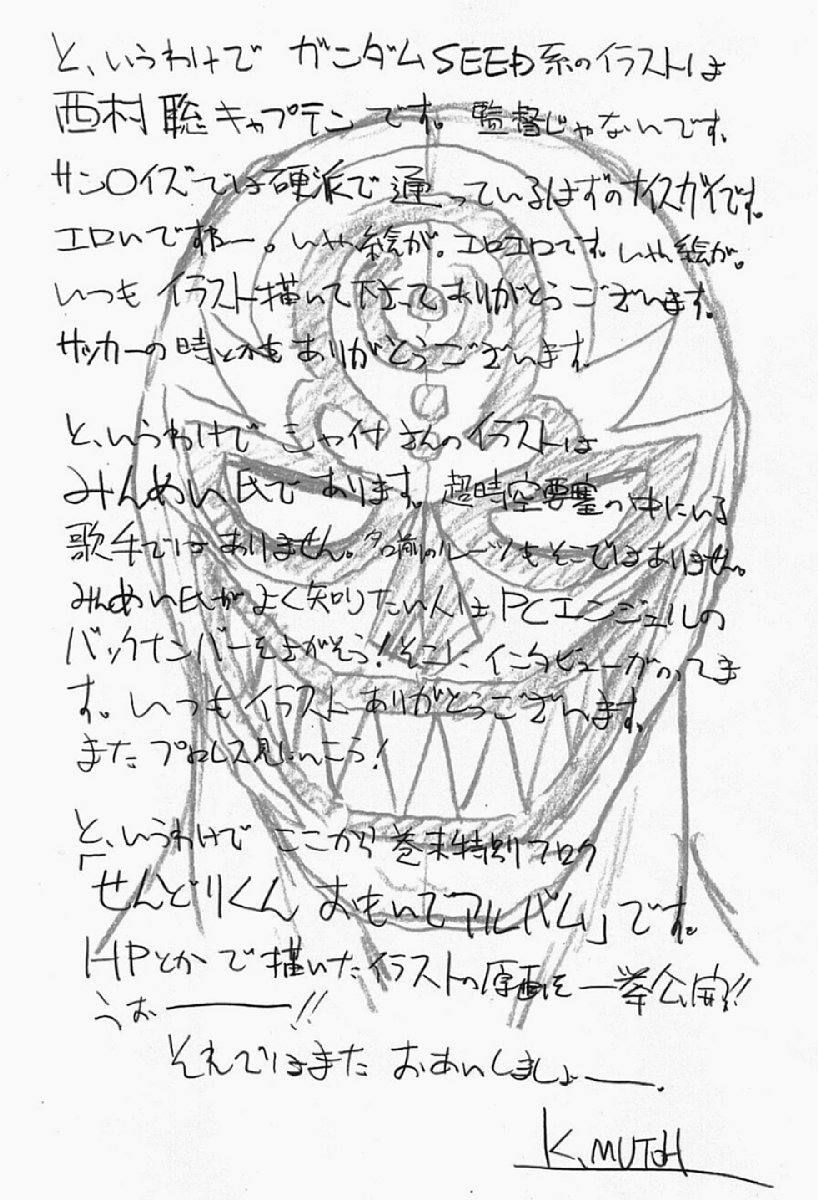 と、いうわけで ガンダムSEED系のイラストは
西村聡キャプテンです。監督じゃないです。
サン○イズでは硬派で通っているはずのナイスガイです。
エロいですねー。いや絵が。エロエロです。いや絵が。
いつもイラスト描いて下さってありがとうございます。
サッカーの時とかもありがとうございます。
と、いうわけで さんのイラストは
みんめい氏であります。超時空要塞の中にいる
歌手ではありません。名前のルーツもそこではありません。
みんめい氏がよく知りたい人はPCエンジェルの
バックナンバーをさがそう!そこにインタビューがのってま
す。いつもイラストありがとうございます。
またプロレス見にいこう!
と、いうわけで ここから巻末特別フロク
「せんどりくん おもいでアルバム」です。
HPとかで描いたイラストの原画を一挙公開!!
うおー!!
それではまた おあいしましょー。
K.MUTOH